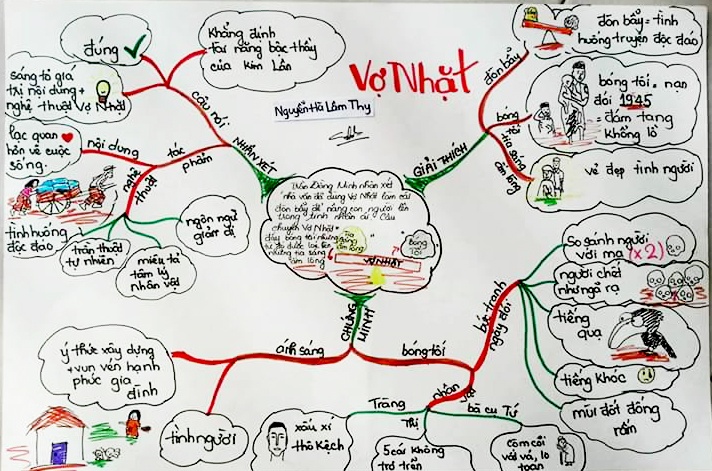 Vợ Nhặt
Nguyễn Hà Lâm Thy
đúng
Khẳng định
tài năng bậc thầy
của Kim Lân
sáng tỏ giá
trị nội dung +
nghệ thuật Vợ Nhặt
câu nói
NHẬN XÉT
lạc quan
hơn về cuộc
sống.
nội dung
tác
phẩm
nghệ
thuật
tình huống
độc đáo
trần thuật
tự nhiên
miêu tả
tâm lý
nhân vật
ngôn ngữ
giản dị
GIẢI THÍCH
đòn bẩy
đòn bẩy = tình
huống truyện độc đáo
bóng
tối
bóng tối = nạn
đói 1945
= đám tang
khổng lồ
tia sáng
ấm lòng
vẻ đẹp tình người
Trần Đăng Ninh nhận xét
nhà văn đã dùng Vợ Nhặt làm cái
đòn bẩy để nâng con người lên
trong tình nhân ái. Câu
chuyện Vợ Nhặt
đầy bóng tối nhưng
từ đó được lại lên
những tia sáng
ấm lòng
Tia
sáng
ấm lòng
Bóng
tối
VỢ NHẶT
CHỨNG
MINH
ánh sáng
ý thức xây dựng
+ vun vén hạnh
phúc gia
đình
tình người
bóng tối
bức tranh
ngày đói
So sánh người
với ma (x2)
người chết
như ngả rạ
tiếng
quạ
tiếng khóc
mùi đốt đống
rấm
nhân
vật
Tràng
xấu xí
thô kệch
Thị
5 cái không
trơ trẽn
bà cụ Tứ
Còm cõi